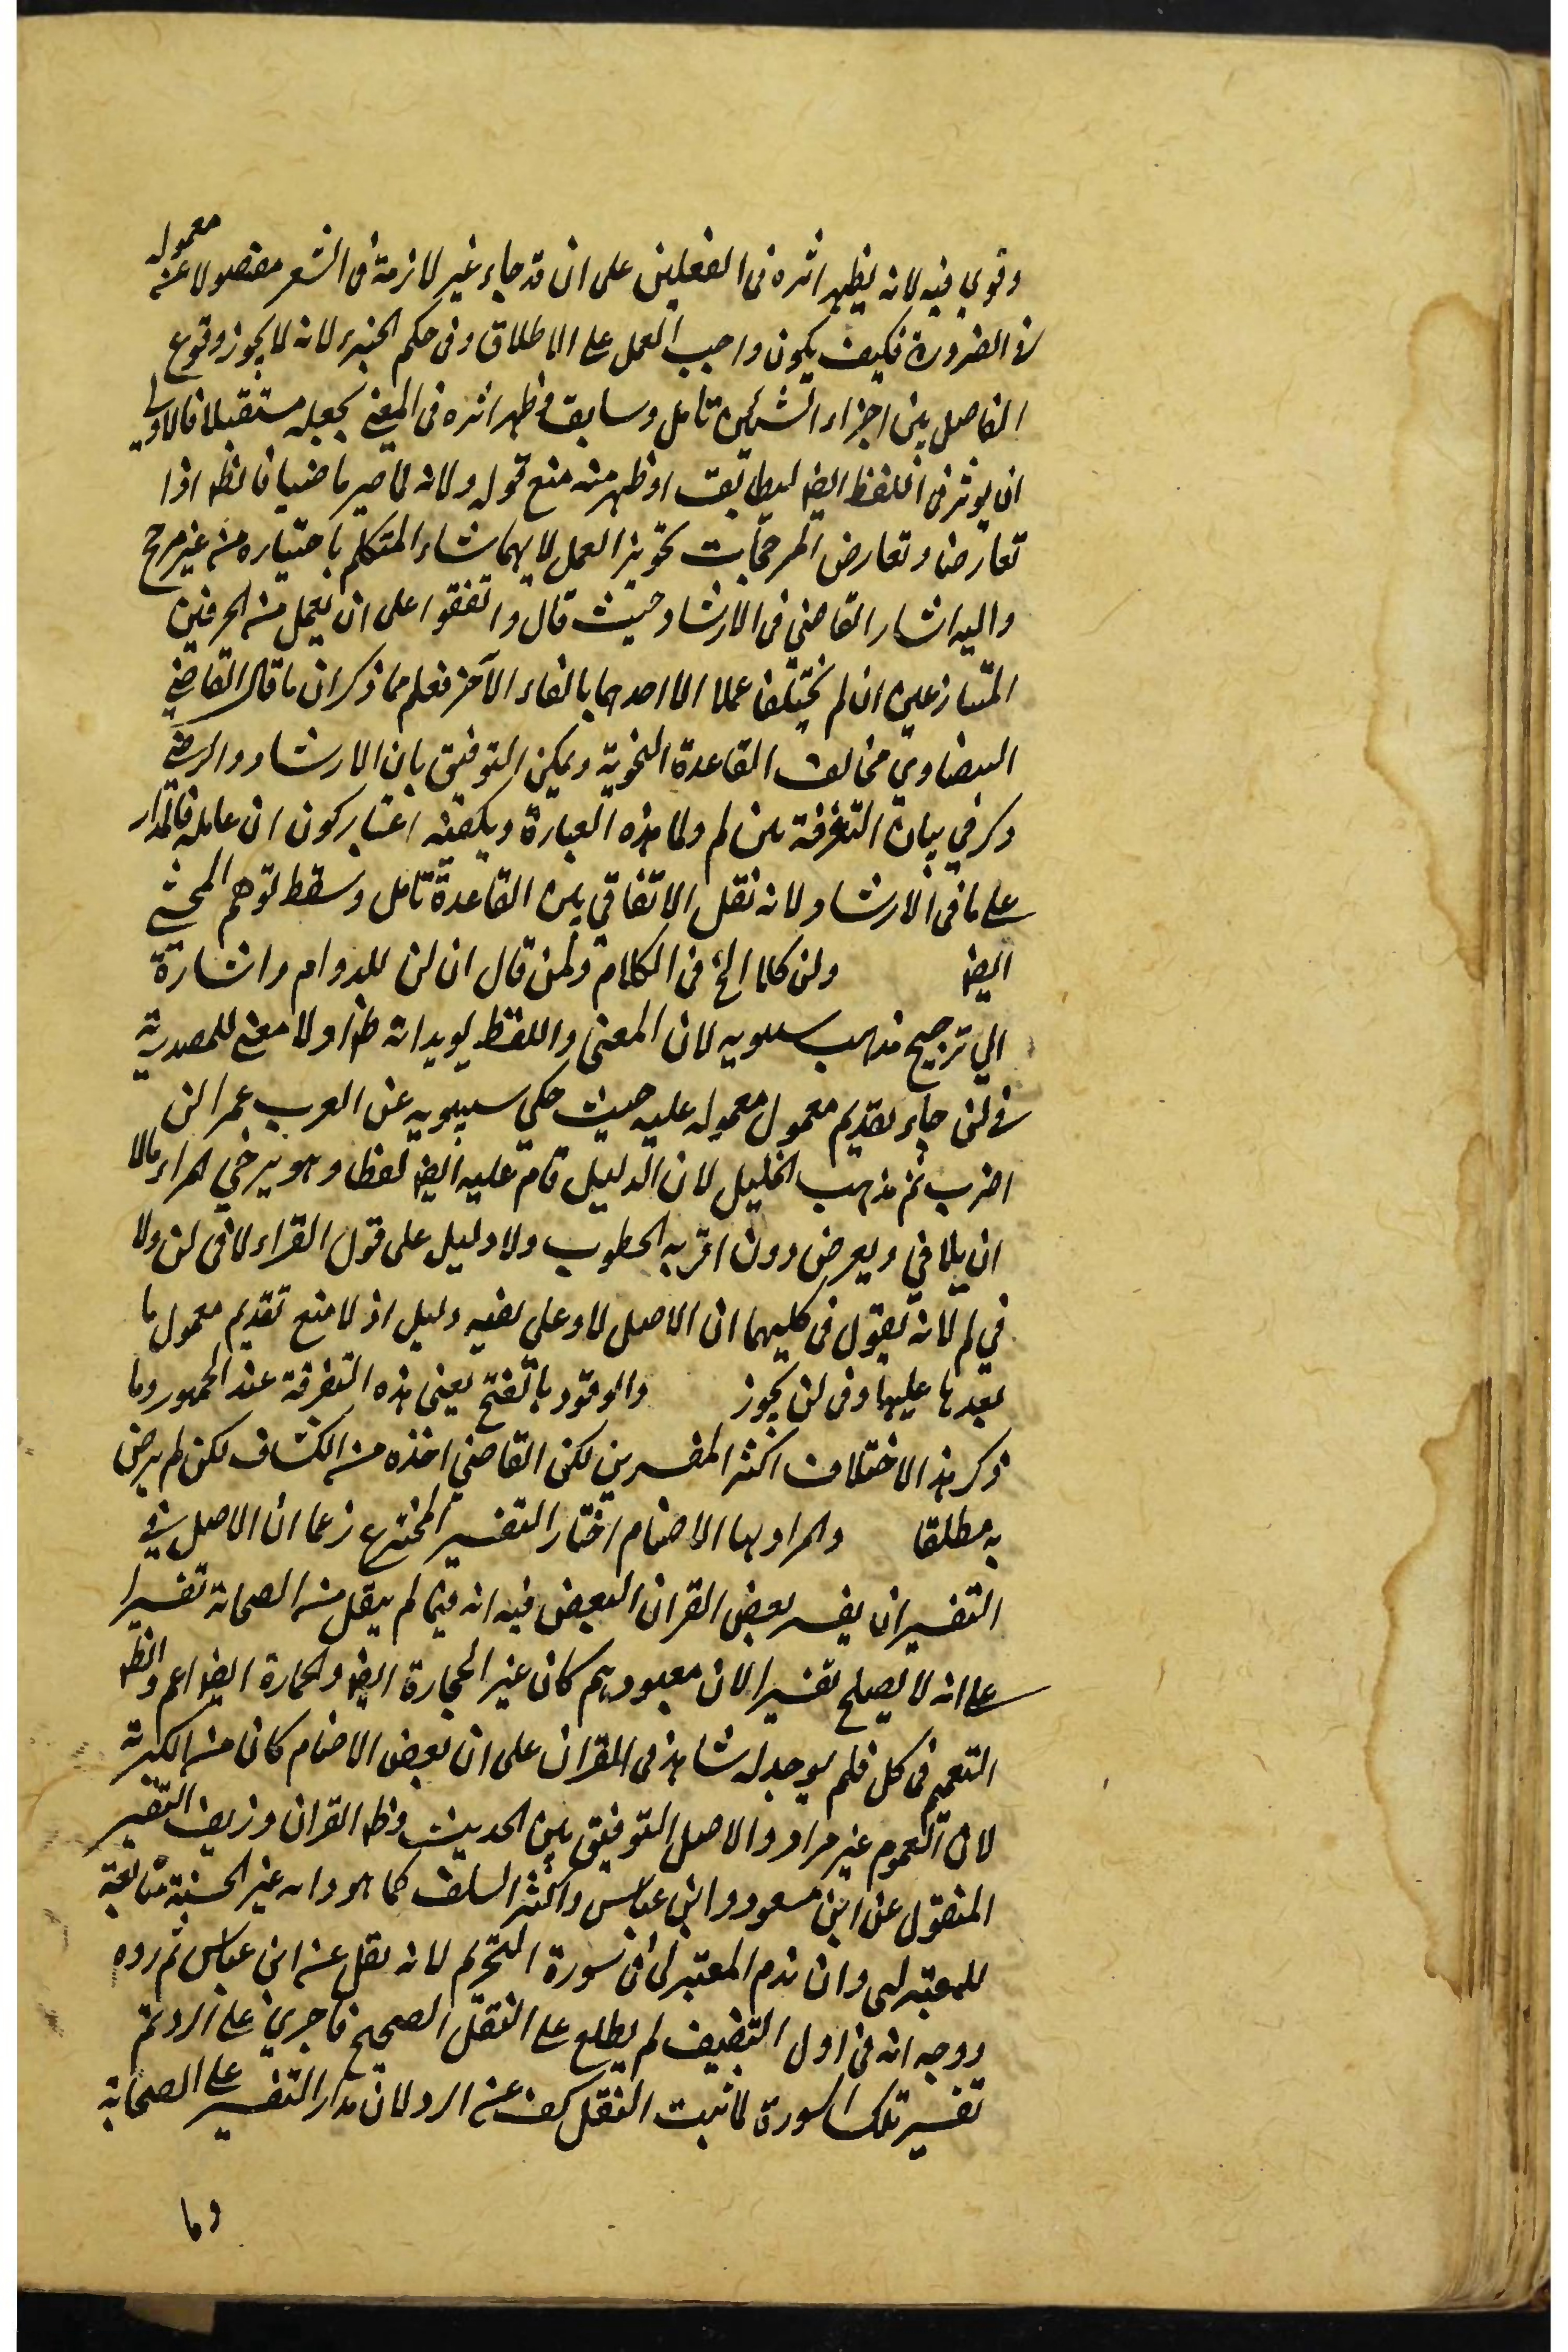 وقوي فيه لانه يظهر اثره فى الفعلين على ان قد جاء غير لازمة فى الشعر مفصولا عنه معموله
فى الضرورة فكيف يكون واجب العمل على الاطلاق وفى حكم الجزء لانه لا يجوز وقوع
الفاصل بين اجزاء الشئين تامل وسابق وظهر اثره فى المعنى بجعله مستقبلا فالاولى
ان يوثر فى اللفظ ايضا ليطابق اوظهر منه منع قوله ولانه لما صير ماضيا فانظر اذا
تعارضا وتعارض المرجحات تجويز العمل لايهما شاء المتكلم باختياره من غير مرجح
واليه اشار القاضي فى الارشاد حيث قال واتفقوا على ان يعمل من الحرفين
المتنازعين ان لم يختلفا عملا الا احدهما بالغاء الآخر فعلم مما ذكر ان ما قال القاضي
البيضاوي مخالف القاعدة النحوية ويمكن التوفيق بان الارشاد والرضي
ذكر في بيان التفرقة بين لم ولما هذه العبارة ويكفيه اعتبار كون ان عامله فالمدار
على ما فى الارشاد لانه نقل الاتفاقي بين القاعدة تامل وسقط توهم المحشي
ايضا ولن كلا الخ فى الكلام ولمن قال ان لن للدوام واشارة
الي ترجيح مذهب سيبويه لان المعنى واللفظ يويدانه ظ اولا معنى للمصدرية
فى لن جاء تقديم معمول معموله عليه حيث حكي سيبويه عن العرب عمرا لن
اضرب ثم مذهب الخليل لان الدليل قام عليه ايضا لفظا وهو يرجي المراء ما لا
ان يلاقي ويعرض دون اقربه الخطوب ولا دليل على قول الفراء لا فى لن ولا
في لم لانه يقول فى كليهما ان الاصل لا وعلى نفيه دليل اذ لا منع تقديم معمول ما
بعدها عليها وفى لن يجوز والوقود بالفتح يعنى هذه التفرقة عند الجمهور وما
ذكر هذا الاختلاف اكثر المفسرين لكن القاضي اخذه من الكشاف لكن لم يرض
به مطلقا والمراد بها الاصنام اختار التفسير المخترع زعما ان الاصل فى
التفسير ان يفسر بعض القران البعض فيه انه فيما لم ينقل من الصحابة تفسيرا
على انه لا يصلح تفسيرا لان معبودهم كان غير الحجارة ايضا والحجارة ايضا اعم وانظر
التعميم فى كل فلم يوجد له شاهد فى القران على ان بعض الاصنام كان من الكبريت
لان العموم غير مراد والاصل التوفيق بين الحديث وظ القران وزيف التفسير
المنقول عن ابن مسعود وابن عباس واكثر السلف كما هو دابه غير الحسنة متابعة
للمعتزلى وان ندم المعتزلى فى سورة التحريم لانه نقل عن ابن عباس ثم رده
ووجه انه فى اول التصنيف لم يطلع على النقل الصحيح فاجري على الرد ثم
تفسير تلك السورة لما ثبت النقل كف عن الرد لان مدار التفسير على الصحابة
وما